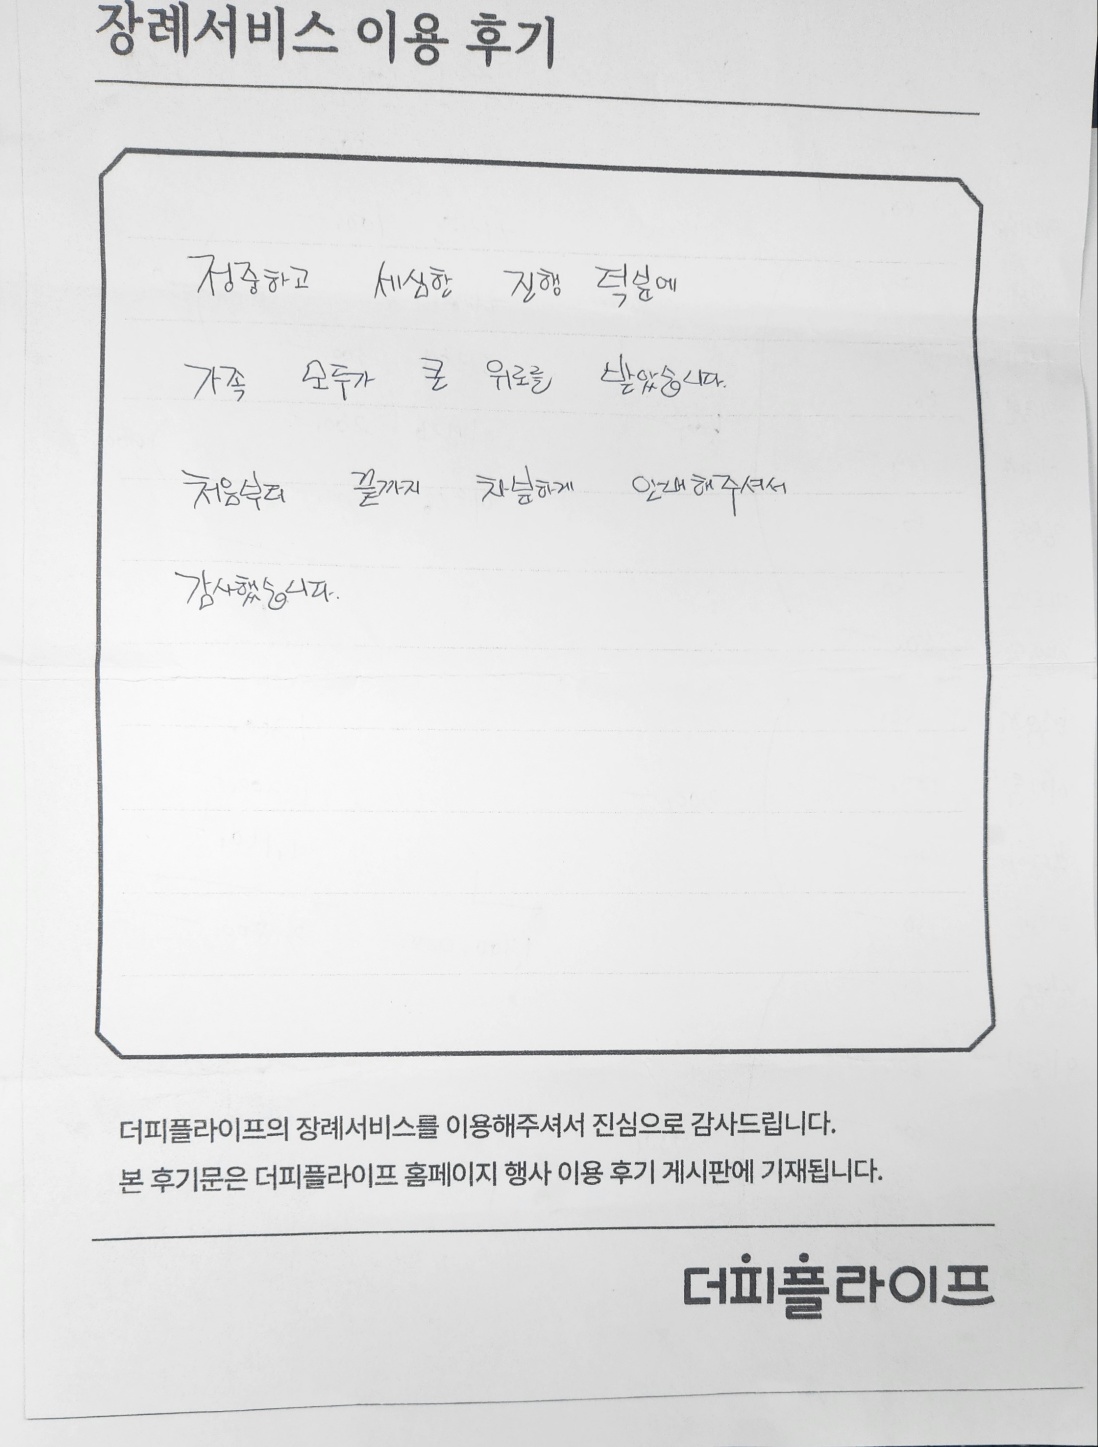 장례서비스 이용 후기
정중하고 세심한 진행 덕분에
가족 모두가 큰 위로를 받았습니다.
처음부터 끝까지 차분하게 안내해주셔서
감사했습니다.
더피플라이프의 장례서비스를 이용해주셔서 진심으로 감사드립니다.
본 후기문은 더피플라이프 홈페이지 행사 이용 후기 게시판에 기재됩니다.
더피플라이프